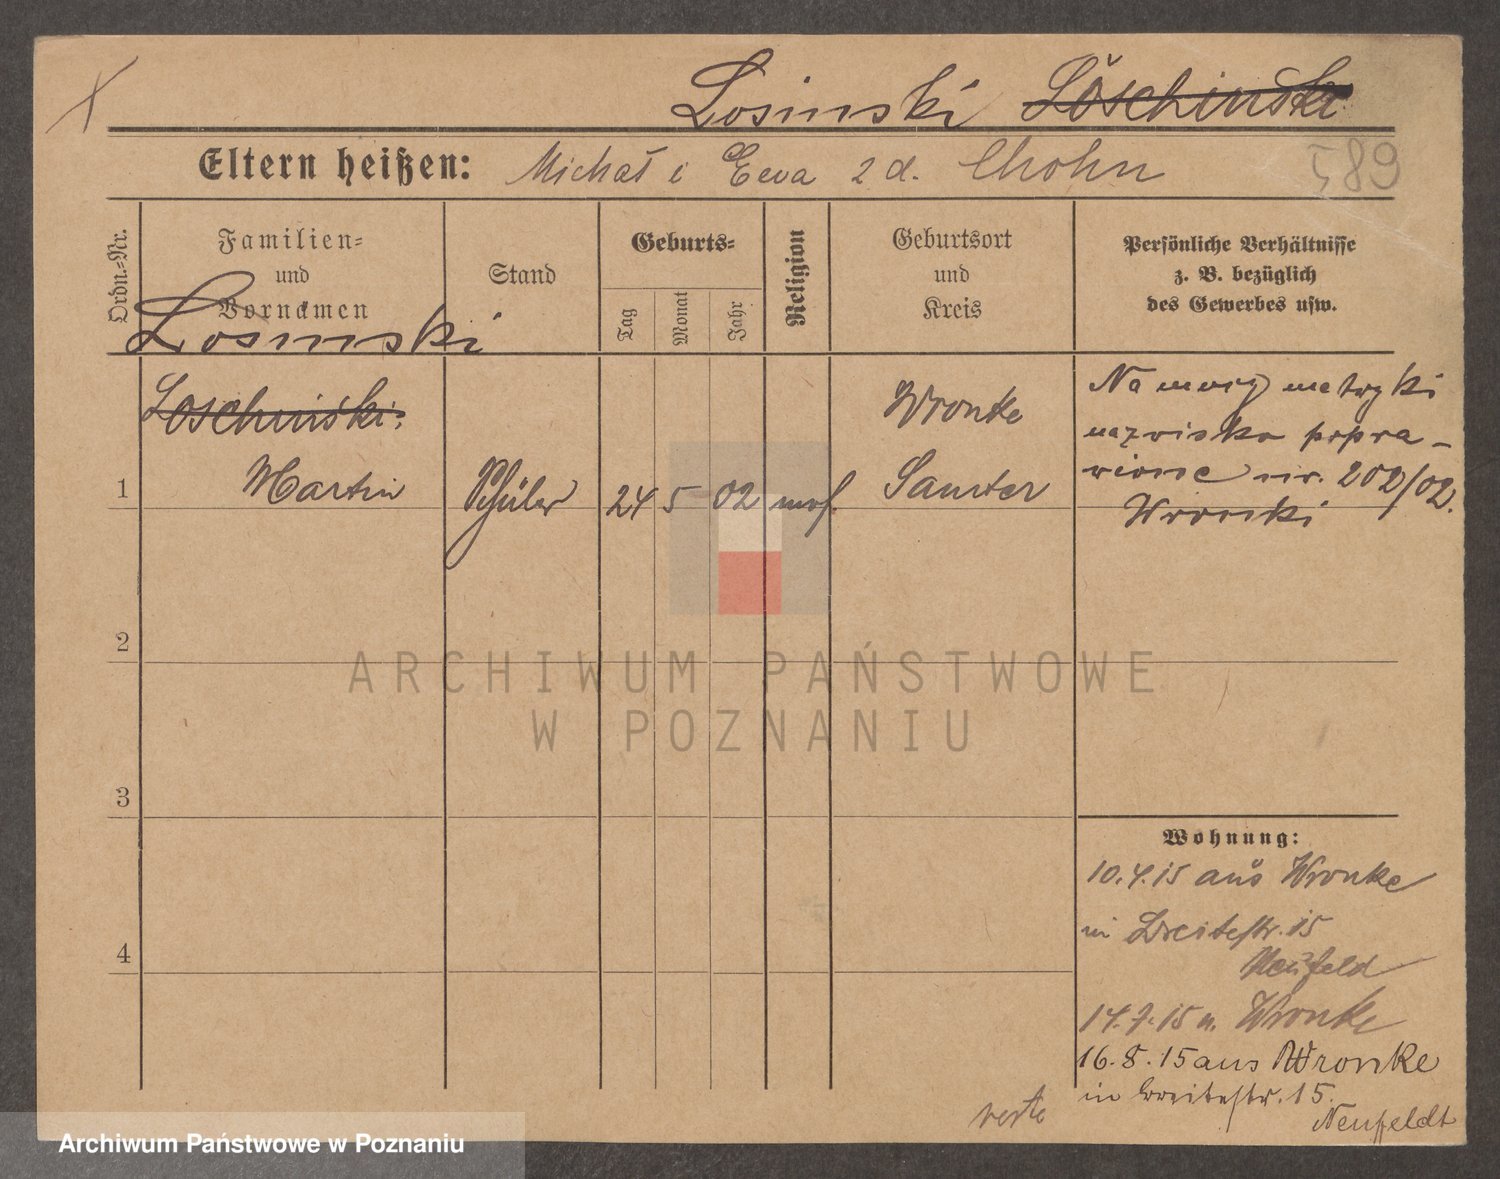 Losinski Löschinski
Eltern heißen: Michał i Ewa 2 d. Chohn
589
Ordn.-Nr.
Familien-
und
Vornamen
Stand
Geburts-
Tag
Monat
Jahr
Religion
Geburtsort
und
Kreis
Persönliche Verhältnisse
z. B. bezüglich
des Gewerbes usw.
Losinski
Loschinski
1 Martin Schüler 24 5 02 mos.
Wronke
Samter
Na mocy metryki
nazwisko popra-
wione nr. 202/02.
Wronki
2
3
4
Wohnung:
10.4.15 aus Wronke
in Breitestr. 15
Neufeld
14.7.15 n. Wronke
16.8.15 aus Wronke
in Breitestr. 15.
Neufeldt
verte
ARCHIWUM PAŃSTWOWE
W POZNANIU
Archiwum Państwowe w Poznaniu